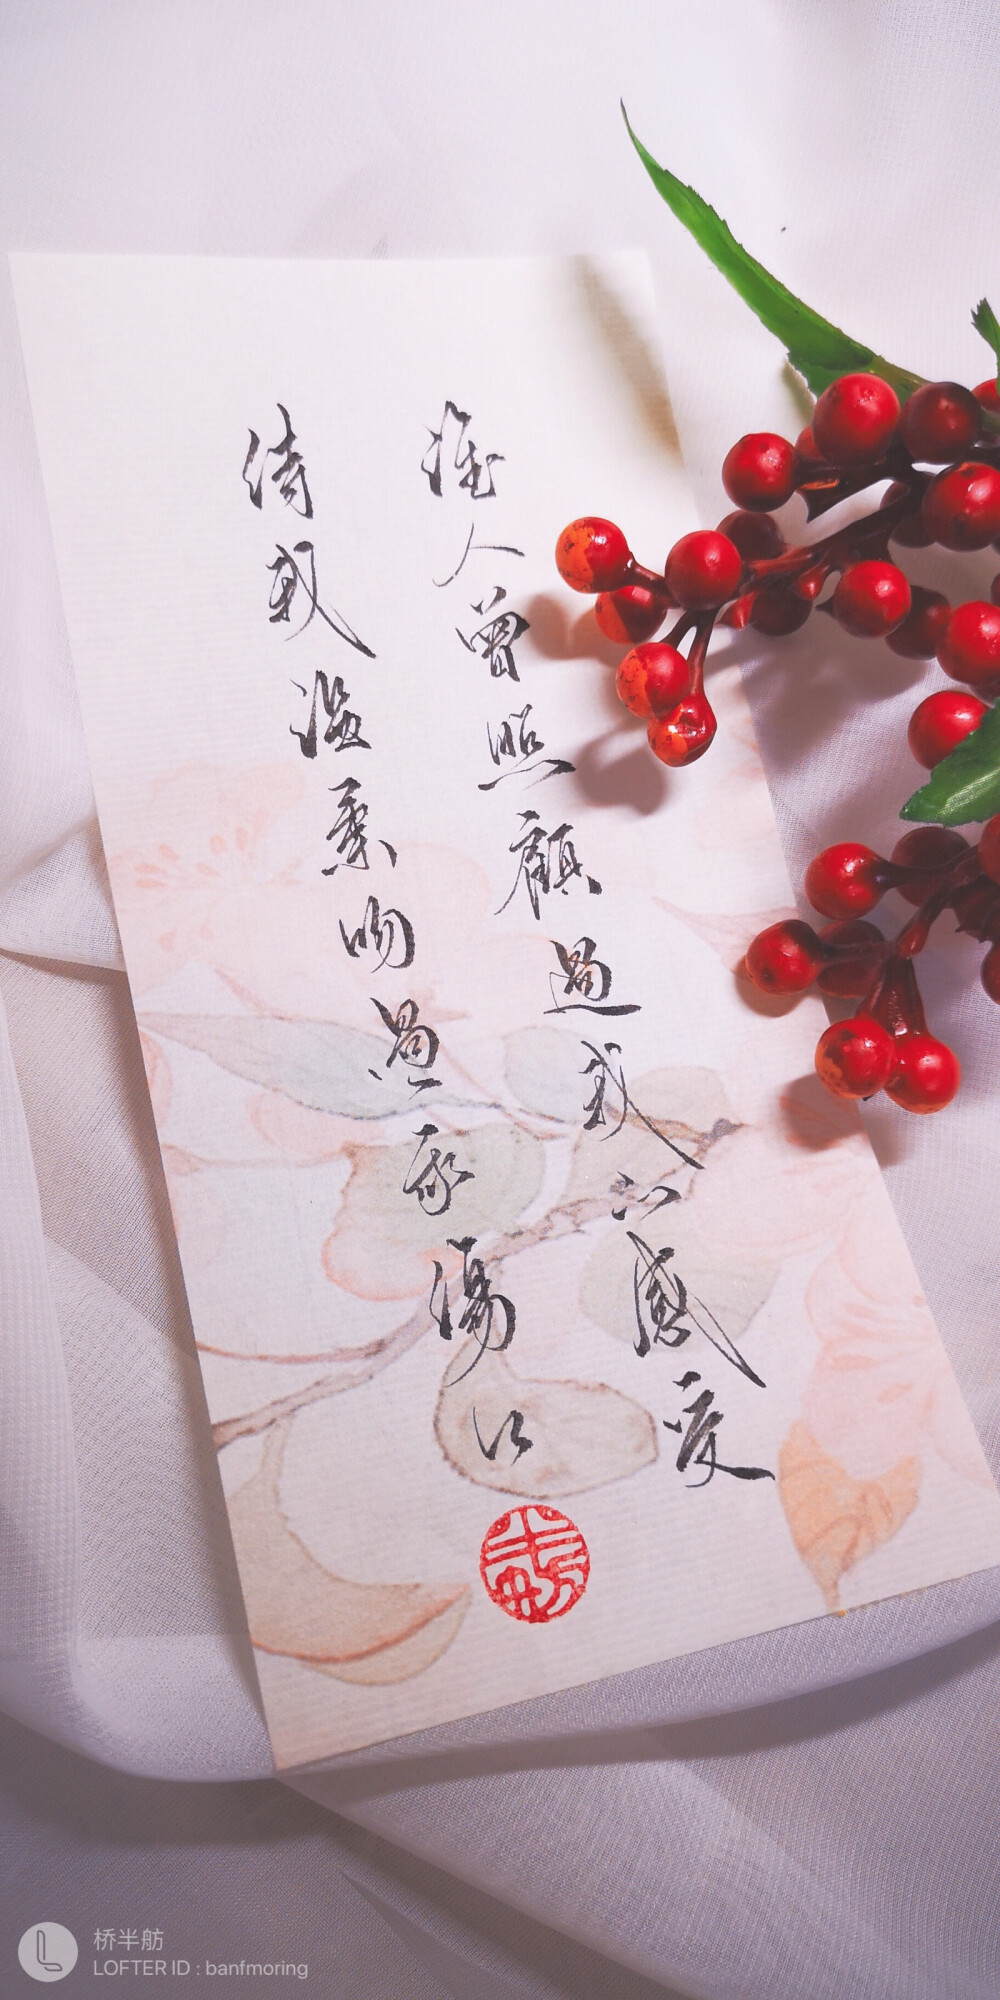 誰人曾照顧過我的感受
待我溫柔吻過我傷口
半舫
桥半舫
LOFTER ID : banfmoring